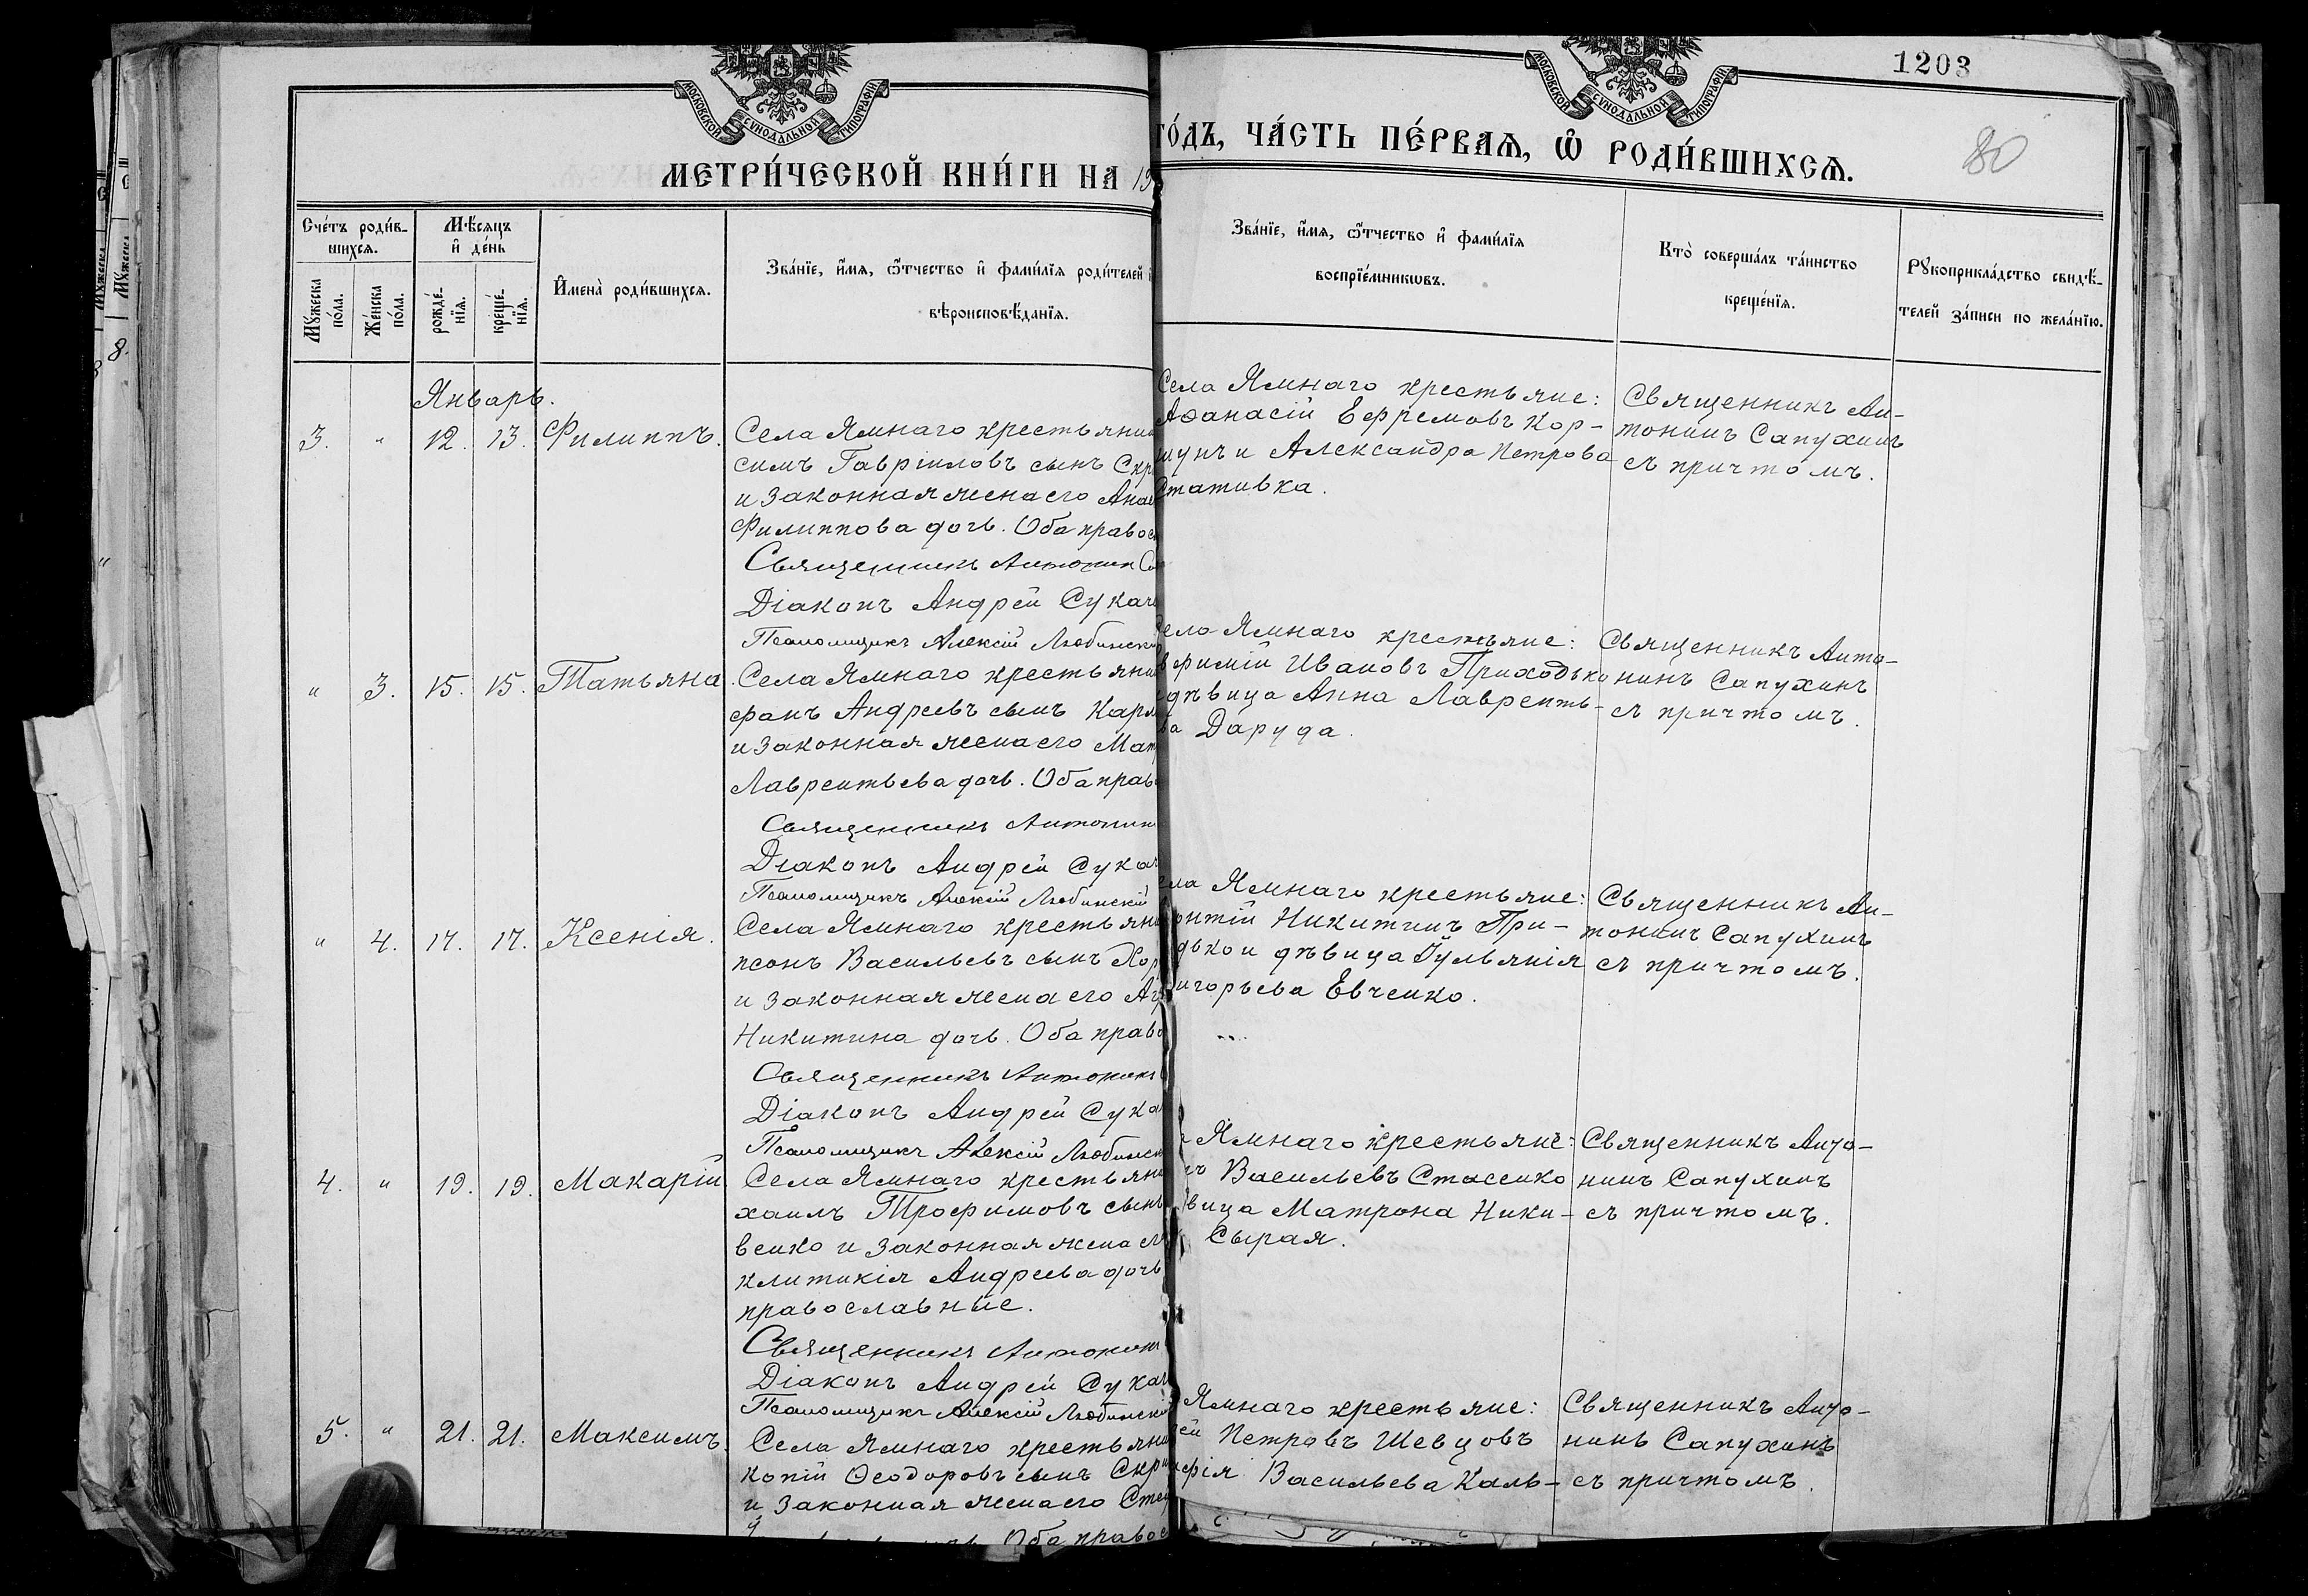 1203
80
МОСКОВСКОЙ СѴНОДАЛЬНОЙ ТИПОГРАФІИ
МОСКОВСКОЙ СѴНОДАЛЬНОЙ ТИПОГРАФІИ
МЕТРИ́ЧЕСКОЙ КНИ́ГИ НА 19
ГО́ДЪ, ЧА́СТЬ ПЕ́РВАѦ, Ѡ҆ РОДИ́ВШИХСѦ.
Сче́тъ роди́в-
шихсѧ.
Мѣ́сѧцъ
и҆ де́нь
Мꙋ́жеска
по́ла.
Же́нска
по́ла.
рожде́-
нїѧ.
креще́-
нїѧ.
И҆мена̀ роди́вшихсѧ.
Зва́нїе, и҆́мѧ, ѻ҆́тчество и҆ фами́лїѧ роди́телей
вѣроисповѣ́данїѧ.
Зва́нїе, и҆́мѧ, ѻ҆́тчество и҆ фами́лїѧ
воспрїе́мникѡвъ.
Кто̀ соверша́лъ та́инство
креще́нїѧ.
Рꙋкоприкла́дство свидѣ́-
телей за́писи по жела́нїю.
Январь.
3. " 12. 13. Филиппъ.
Села Ямнаго крестьянин
симъ Гавріиловъ сынъ Скр
и законная жена его Анас
Филиппова дочь. Оба правос
Священникъ Антонин Са
Діаконъ Андрей Сукач
Псаломщикъ Алексій Любинскій
Села Ямнаго крестьяне:
Аѳанасій Ефремовъ Кор-
шунъ и Александра Петрова
Стативка.
Священникъ Ан-
тонинъ Сапухинъ
съ причтомъ.
" 3. 15. 15. Татьяна.
Села Ямнаго крестьянин
фанъ Андреевъ сынъ Карп
и законная жена его Мат
Лаврентьева дочь. Оба прав
Священникъ Антонин
Діаконъ Андрей Сукач
Псаломщикъ Алексій Любинскій
Села Ямнаго крестьяне:
Ефимій Ивановъ Приходько
дѣвица Анна Лавренть-
ва Даруда.
Священникъ Анто-
нинъ Сапухинъ
съ причтомъ.
" 4. 17. 17. Ксенія.
Села Ямнаго крестьяни
псонъ Васильевъ сынъ Кор
и законная жена его Аг
Никитина дочь. Оба право
Священникъ Антонинъ
Діаконъ Андрей Сука
Псаломщикъ Алексій Любинск
ела Ямнаго крестьяне:
онтій Никитинъ При-
дько и дѣвица Іульянія
игорьева Евченко.
Священникъ Ан-
тонинъ Сапухинъ
съ причтомъ.
4. " 19. 19. Макарій
Села Ямнаго крестьяни
хаилъ Трофимовъ сынъ
венко и законная жена ег
клитикія Андреева дочь
православные.
Священникъ Антонинъ
Діаконъ Андрей Сукач
Псаломщикъ Алексій Любинскій
Ямнаго крестьяне:
Васильевъ Стасенко
вица Матрона Ники-
Сырая.
Священникъ Анто-
нинъ Сапухинъ
съ причтомъ.
5. " 21. 21. Максимъ.
Села Ямнаго крестьяни
копій Ѳеодоровъ сынъ Скри
и законная жена его Стеф
Оба правос
Ямнаго крестьяне:
ей Петровъ Шевцовъ
фія Васильева Каль-
Священникъ Анто-
нинъ Сапухинъ
съ причтомъ.